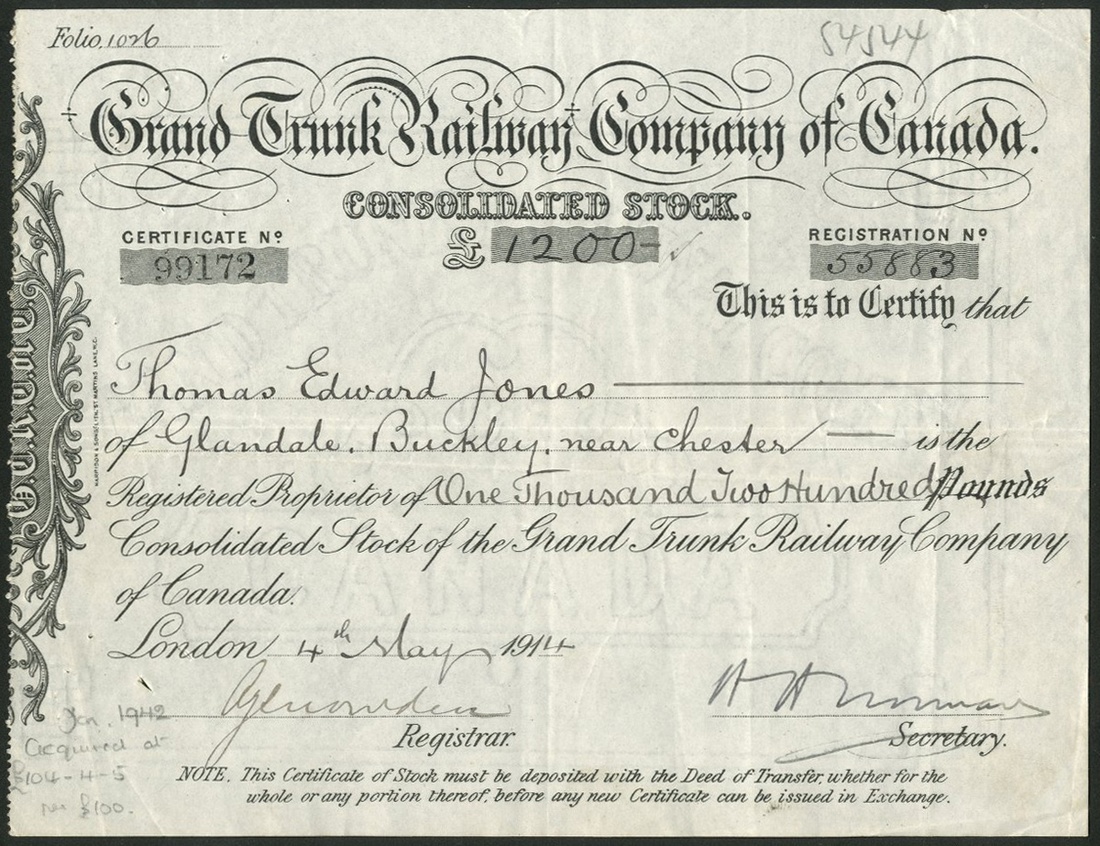 Folio, 1026
54544
Grand Trunk Railway Company of Canada.
CONSOLIDATED STOCK.
CERTIFICATE Nº
99172
£ 1200-
REGISTRATION Nº
55883
This is to Certify that
Thomas Edward Jones
of Glandale, Buckley, near Chester is the
Registered Proprietor of One Thousand Two Hundred Pounds
Consolidated Stock of the Grand Trunk Railway Company
of Canada.
London 4th May 1914
H H Norman
Registrar.
Secretary.
Jan. 1942
acquired at
£104-4-5
per £100.
NOTE. This Certificate of Stock must be deposited with the Deed of Transfer, whether for the
whole or any portion thereof, before any new Certificate can be issued in Exchange.
G.T.R.C. of C.